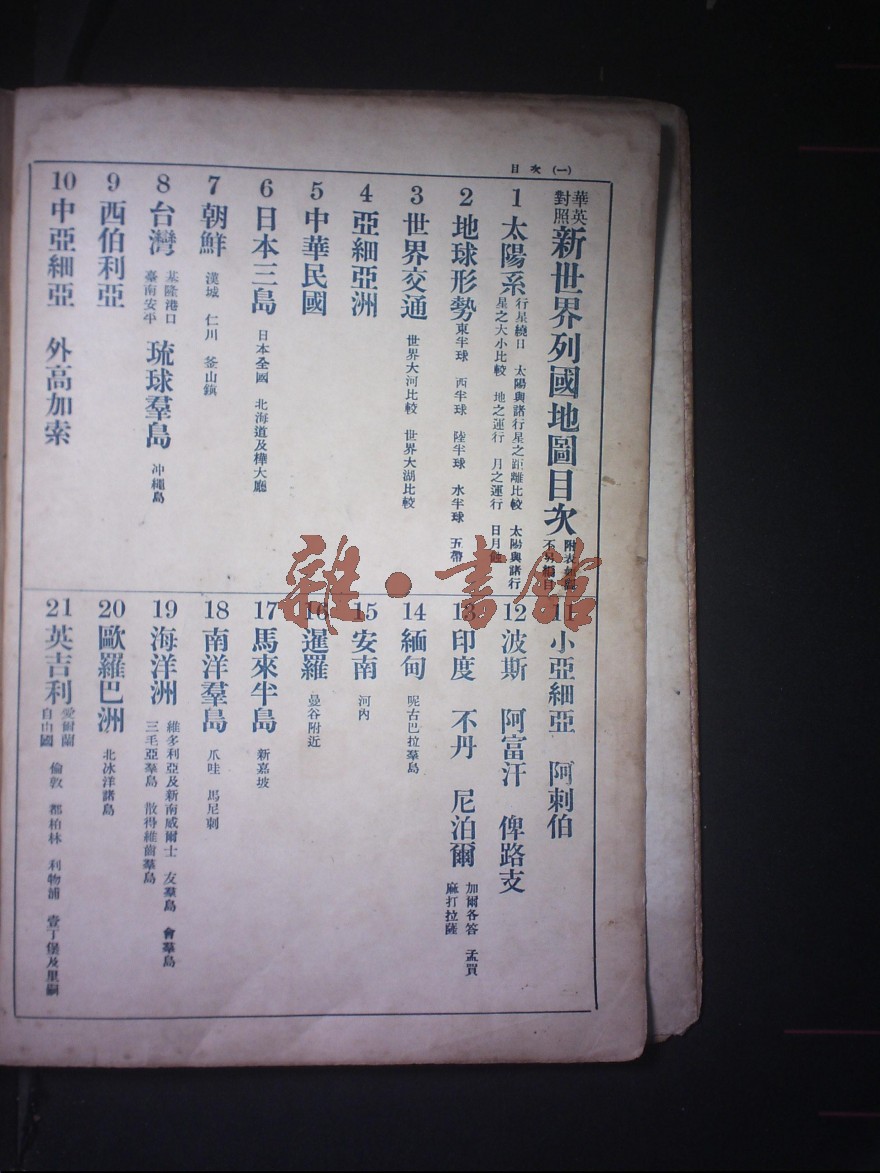 目次（一）
華英對照 新世界列國地圖目次 附表
1 太陽系 行星繞日 太陽與諸行星之距離比較 太陽與諸行星之大小比較 地之運行 月之運行 日月蝕
2 地球形勢 東半球 西半球 陸半球 水半球 五帶
3 世界交通 世界大河比較 世界大湖比較
4 亞細亞洲
5 中華民國
6 日本三島 日本全國 北海道及樺大廳
7 朝鮮 漢城 仁川 釜山鎮
8 台灣 基隆港口 臺南安平 琉球羣島 冲繩島
9 西伯利亞
10 中亞細亞 外高加索
11 小亞細亞 阿剌伯
12 波斯 阿富汗 俾路支
13 印度 不丹 尼泊爾 加爾各答 孟買 麻打拉薩
14 緬甸 呢古巴拉羣島
15 安南 河內
16 暹羅 曼谷附近
17 馬來半島 新嘉坡
18 南洋羣島 爪哇 馬尼剌
19 海洋洲 維多利亞及新南威爾士 友羣島 會羣島 三毛亞羣島 散得維齒羣島
20 歐羅巴洲 北冰洋諸島
21 英吉利 愛爾蘭自由國 倫敦 都柏林 利物浦 壹丁堡及里嗣
雜·書館